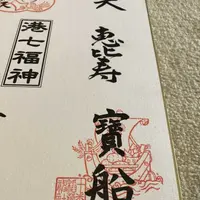 寳船
恵比寿
港七福神